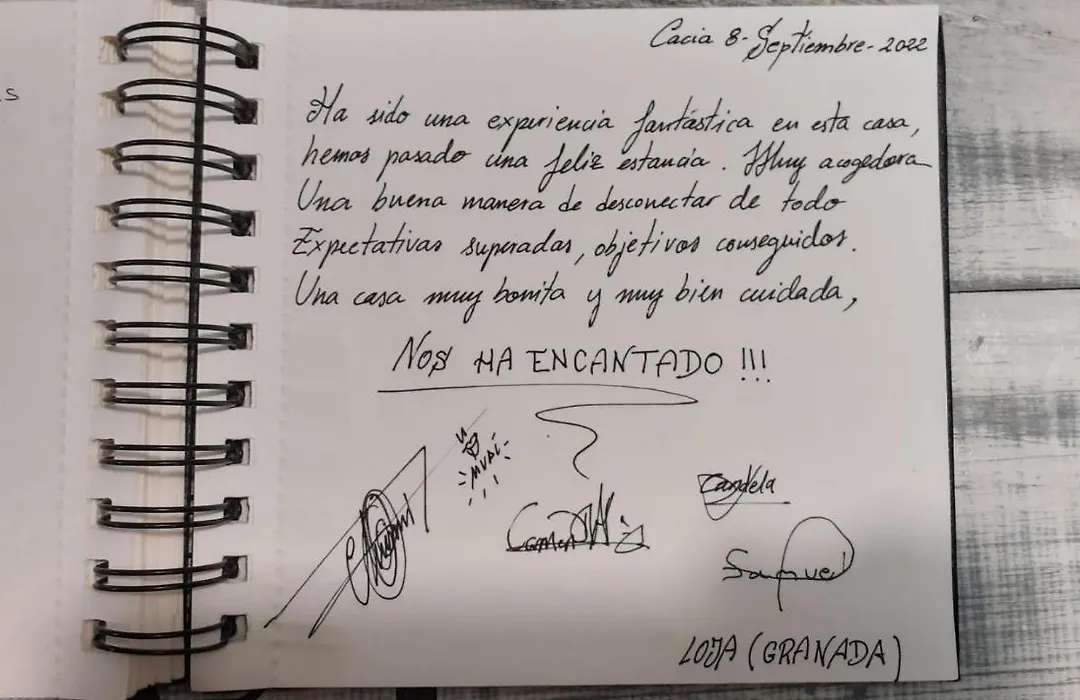 s
Cacia 8-Septiembre-2022
Ha sido una experiencia fantástica en esta casa,
hemos pasado una feliz estancia. Muy acogedora
Una buena manera de desconectar de todo
Expectativas superadas, objetivos conseguidos.
Una casa muy bonita y muy bien cuidada,
NOS HA ENCANTADO !!!
Candela
Samuel
LOJA (GRANADA)